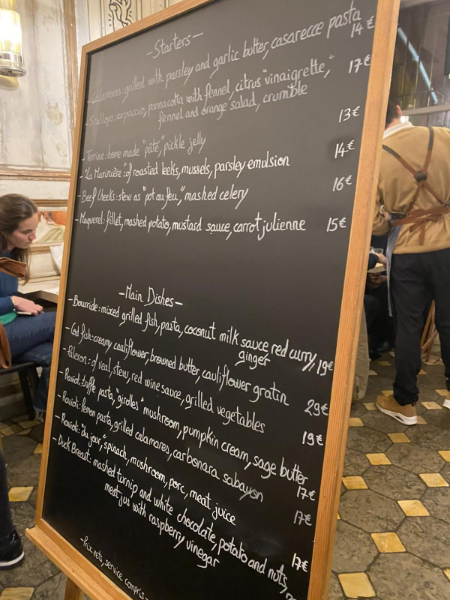 -Starters-
-Calamares: grilled with parsley and garlic butter, casarecce pasta
14€
-Scallops: carpaccio, pannacotta with fennel, citrus "vinaigrette,"
17€
fennel and orange salad, crumble
-Terrine: home made "pâté", pickle jelly
13€
-"La Marinière": of roasted leeks, mussels, parsley emulsion
14€
-Beef Cheeks: stew as "pot au feu", mashed celery
16€
-Maquerel: fillet, mashed potato, mustard sauce, carrot julienne 15€
-Main Dishes-
-Bouride: mixed grilled fish, pasta, coconut milk sauce red curry,
ginger 19€
-Cod fish: creamy cauliflower, browned butter, cauliflower gratin
23€
: of veal, stew, red wine sauce, grilled vegetables
19€
-Ravioli: truffe pasta, "giroles" mushroom, pumpkin cream, sage butter
17€
-Ravioli: lemon pasta, grilled calamares, carbonara sabayon
17€
-Ravioli: "Du jour", spinach, mushroom, porc, meat juice
17€
-Duck Breast: mashed turnip and white chocolate, potato and nuts,
meat jus with raspberry vinegar
-Prix nets, service compris-